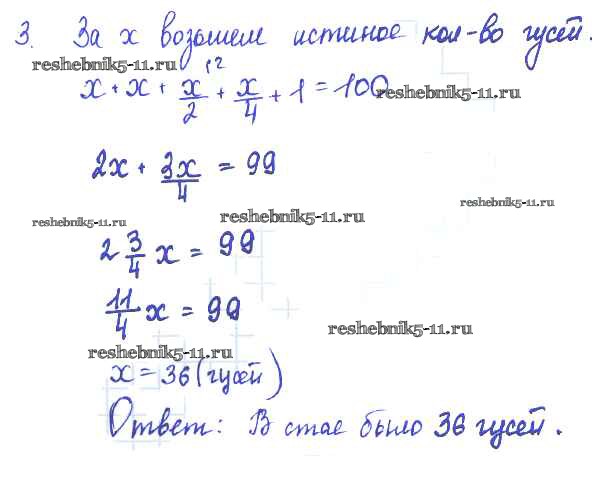 3. За x возьмем истиное кол-во гусей.
reshebnik5-11.ru
x + x + x/2 + x/4 + 1 = 100
reshebnik5-11.ru
2x + 3x/4 = 99
reshebnik5-11.ru
reshebnik5-11.ru
reshebnik5-11.ru
2 3/4 x = 99
11/4 x = 99
reshebnik5-11.ru
reshebnik5-11.ru
x = 36 (гусей)
Ответ: В стае было 36 гусей.